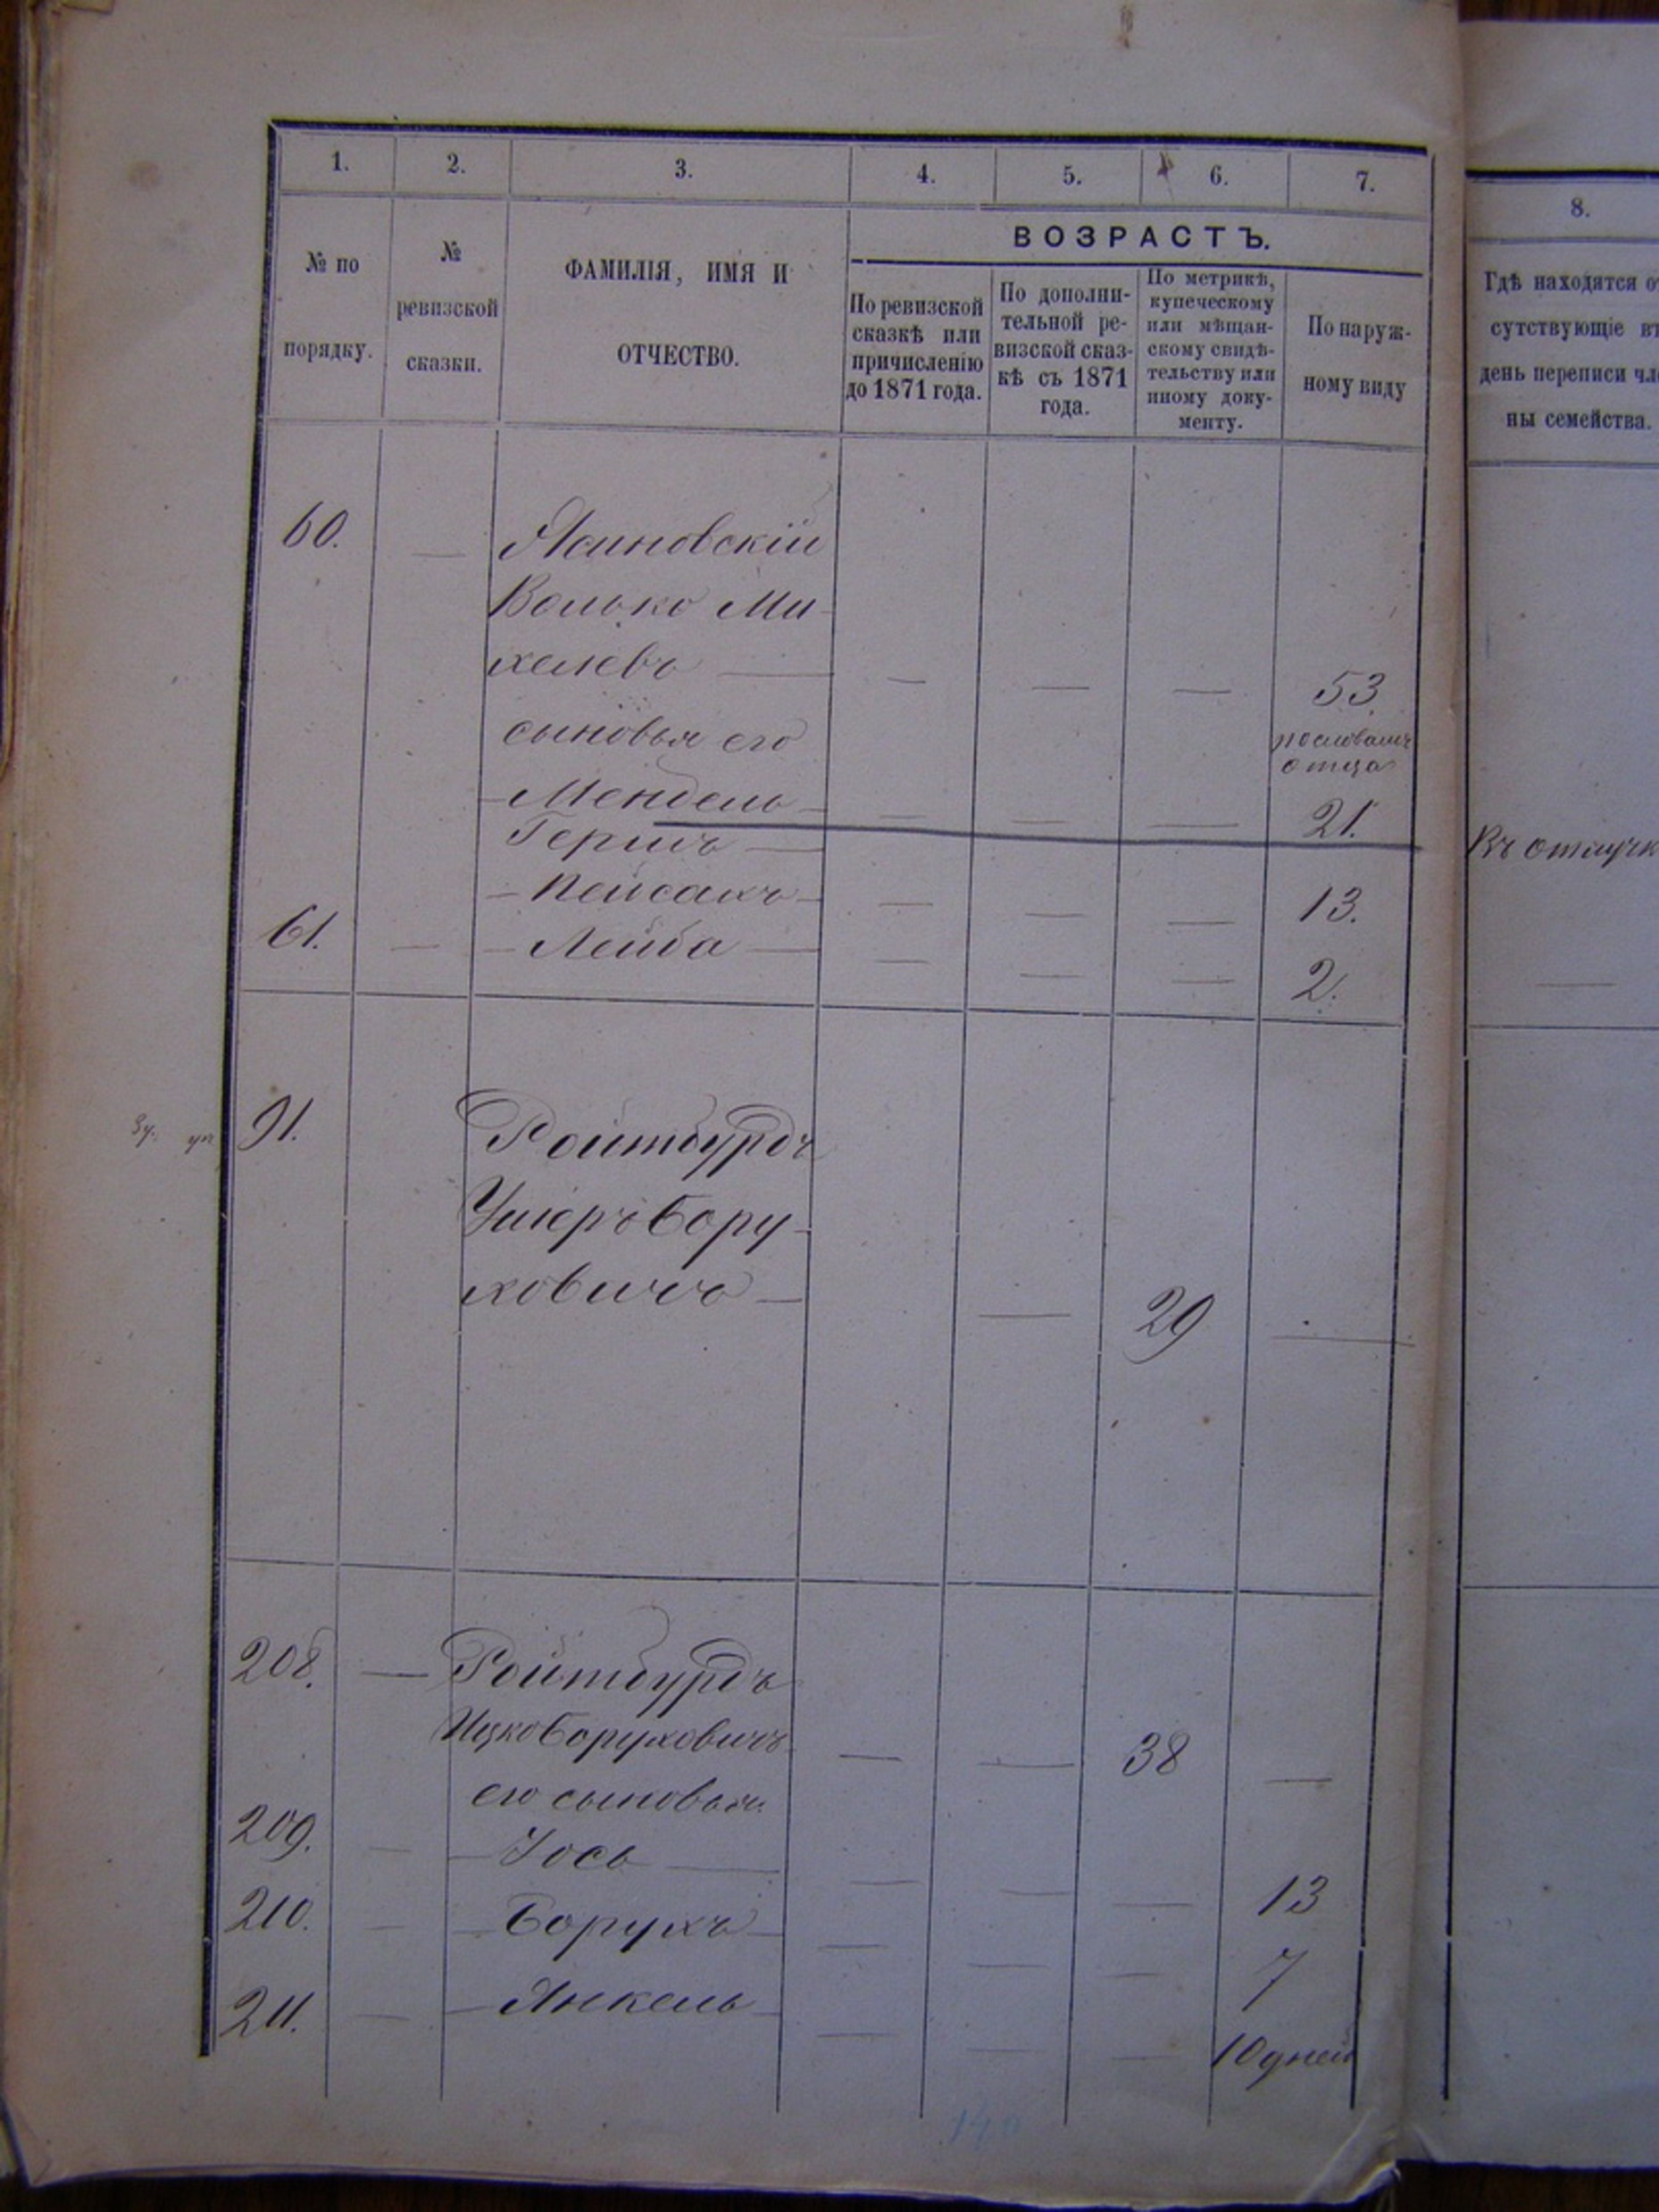 1. 2. 3. 4. 5. 6. 7.
8.
№ по
порядку.
№
ревизской
сказки.
ФАМИЛІЯ, ИМЯ И
ОТЧЕСТВО.
ВОЗРАСТЪ.
По ревизской
сказкѣ или
причисленію
до 1871 года.
По дополни-
тельной ре-
визской сказ-
кѣ съ 1871
года.
По метрикѣ,
купеческому
или мѣщан-
скому свидѣ-
тельству или
иному доку-
менту.
По наруж-
ному виду
Гдѣ находятся от
сутствующіе въ
день переписи чле
ны семейства.
60. — Ясиновскій
Волько Ми-
хелевъ — — — — 53
сыновья его
отца
— Мендель — — — — 21.
Гершъ —
Въ отлучк
— Пейсахъ — — — — 13.
61. — — Лейба — — — — 2.
91. Ройтбурдъ
Ушеръ Бору-
ховичъ — — 29 —
208. — Ройтбурдъ
Ицко Боруховичъ — — 38 —
его сыновья
209. — — Іось — — — — 13
210. — — Борухъ — — — — 7
211. — — Янкель — — — — 10 дней